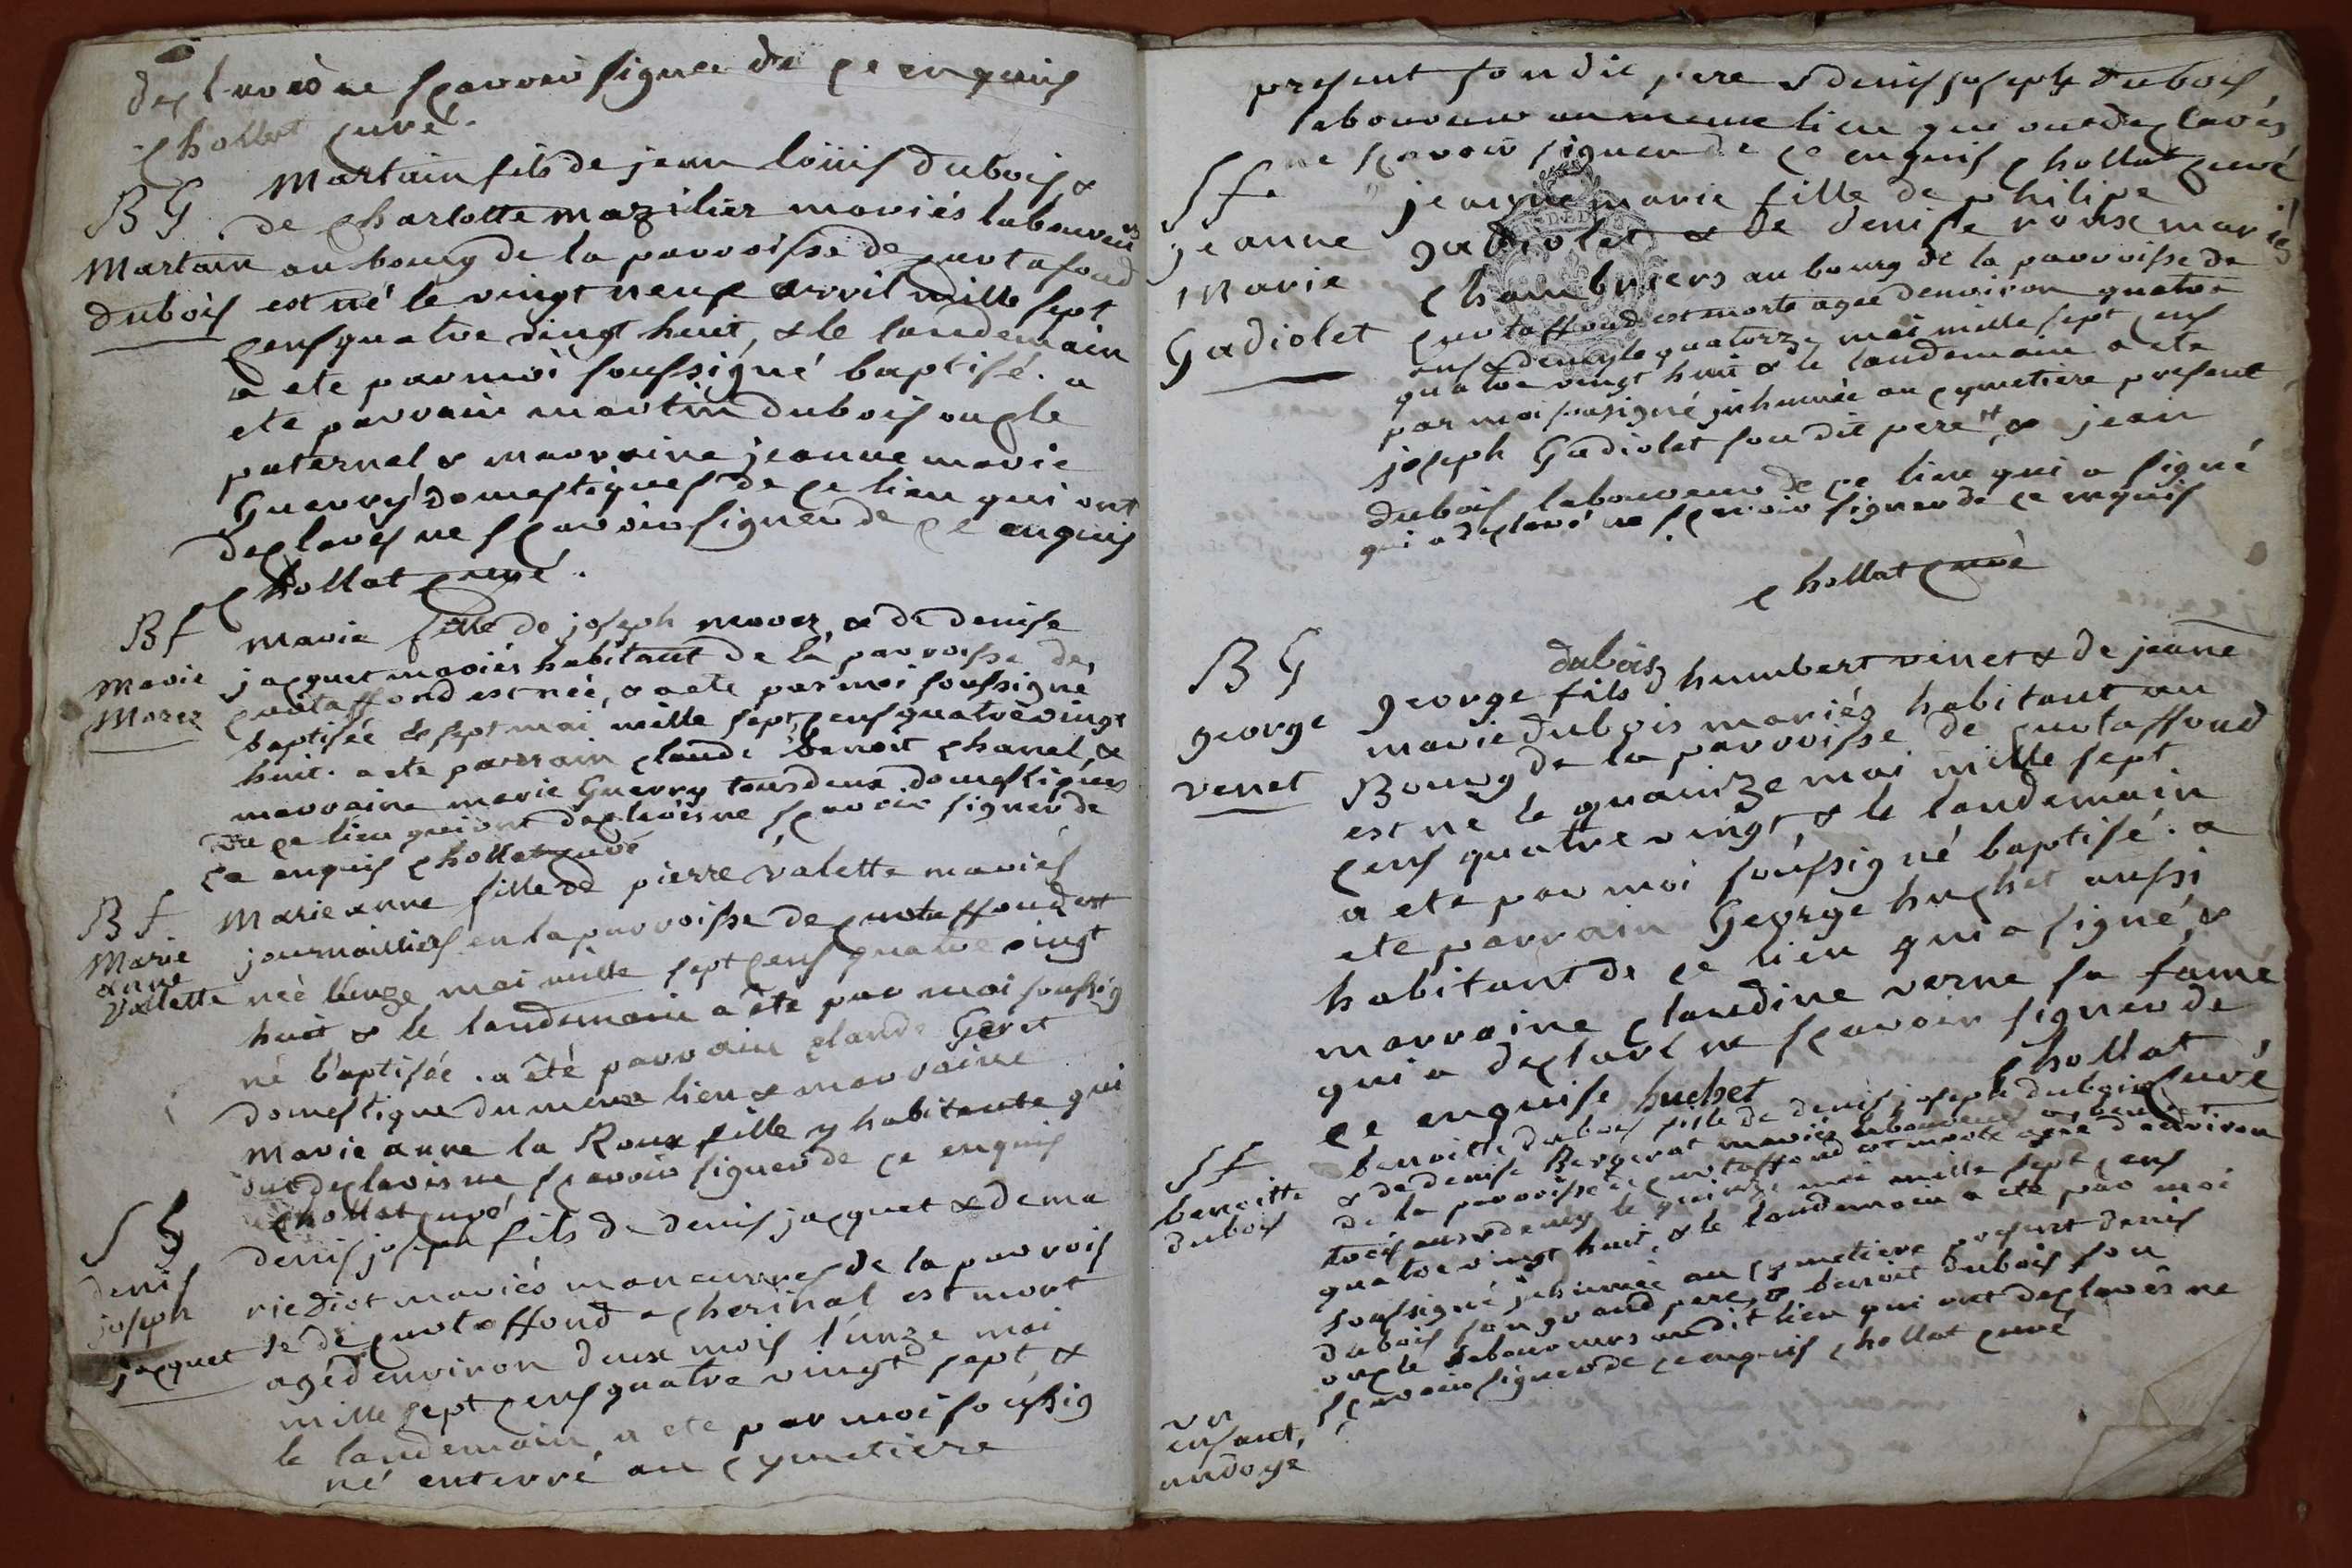 declarés ne sçavoir signer de ce enquis
chollat curé.
B G
Martain
dubois
Martain fils de jean loüis dubois &
de charlotte mazilier mariés laboureurs
au bourg de la parroisse de curtafond
est né le vingt neuf avril mille sept
cens quatre vingt huit, & le landemain
a ete par moi soussigné baptisé. a
ete parrain martin dubois oncle
paternel & marraine jeanne marie
Guerry domestiques de ce lieu qui ont
declarés ne sçavoir signer de ce enquis
chollat curé.
B f
Marie
Morez
Marie fille de joseph morez & de denise
jacquet mariés habitant de la parroisse de
curtaffond est née, & a ete par moi soussigné
baptisée le sept mai mille sept cens quatre vingt
huit. a ete parrain claude benoit chanel &
marraine marie Guerry tous deux domestiques
de ce lieu qui ont declarés ne sçavoir signer de
ce enquis chollat curé
B f
Marie
anne
Valette
Marie anne fille de pierre valette mariés
journailliers en la parroisse de curtaffond est
née l'unze mai mille sept cens quatre vingt
huit & le landemain a été par moi soussig
né baptisée. a été parrain claude Geret
domestique du meme lieu & marraine
Marie anne la Roux fille y habitante qui
ont declarés ne sçavoir signer de ce enquis
chollat curé
S G
denis
joseph
jacquet
denis joseph fils de denis jacquet & de ma
rie Diot mariés maneuvres de la parrois
se de curtaffond a cherinal est mort
agé d'environ deux mois l'unze mai
mille sept cens quatre vingt sept &
le landemain a ete par moi soussig
né enterré au cymetiere
present son dit pere & denis joseph dubois
laboureur au meme lieu qui ont declarés
ne sçavoir signer de ce enquis chollat curé
S f.
jeanne
Marie
Gadiolet
jeanne marie fille de philipe
gadiolet & de denise roux mariés
chambriers au bourg de la parroisse de
curtaffond est morte agée d'environ quatre
ans & demy le quatorze mai mille sept cens
quatre vingt huit & le landemain a ete
par moi sousigné inhumée au cymetiere present
joseph Gadiolet son dit pere & jean
dubois laboureur de ce lieu qui a signé
qui a declaré ne sçavoir signer de ce enquis
chollat curé
B G
george
venet
dubois
george fils d'humbert venet & de jeanne
marie dubois mariés habitant au
Bourg de la parroisse de curtaffond
est né le quainze mai mille sept
cens quatre vingt, & le landemain
a ete par moi soussigné baptisé. a
ete parrain George huchet aussi
habitant de ce lieu qui a signé, &
marraine claudine verne sa fame
qui a declaré ne sçavoir signer de
ce enquise huchet chollat
curé
S f
benoitte
dubois
benoitte dubois fille de denis joseph dubois
& de denise Bergerat mariés laboureurs
de la parroisse de curtaffond est morte agée d'environ
trois ans & demy le quinze mai mille sept cens
quatre vingt huit, & le landemain a ete par moi
soussigné inhumée au cymetiere present denis
dubois son grand pere, & benoit dubois son
oncle laboureurs au dit lieu qui ont declarés ne
sçavoir signer de ce enquis chollat curé
un
enfant,
undoye